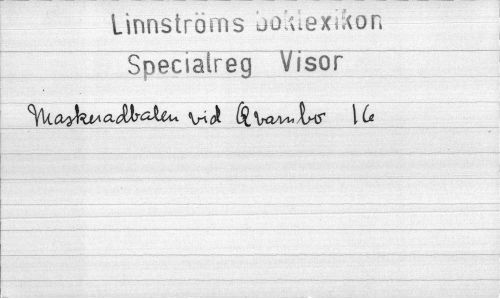 Linnströms boklexikon
Specialreg Visor
Maskeradbalen vid Qvarnbo 16